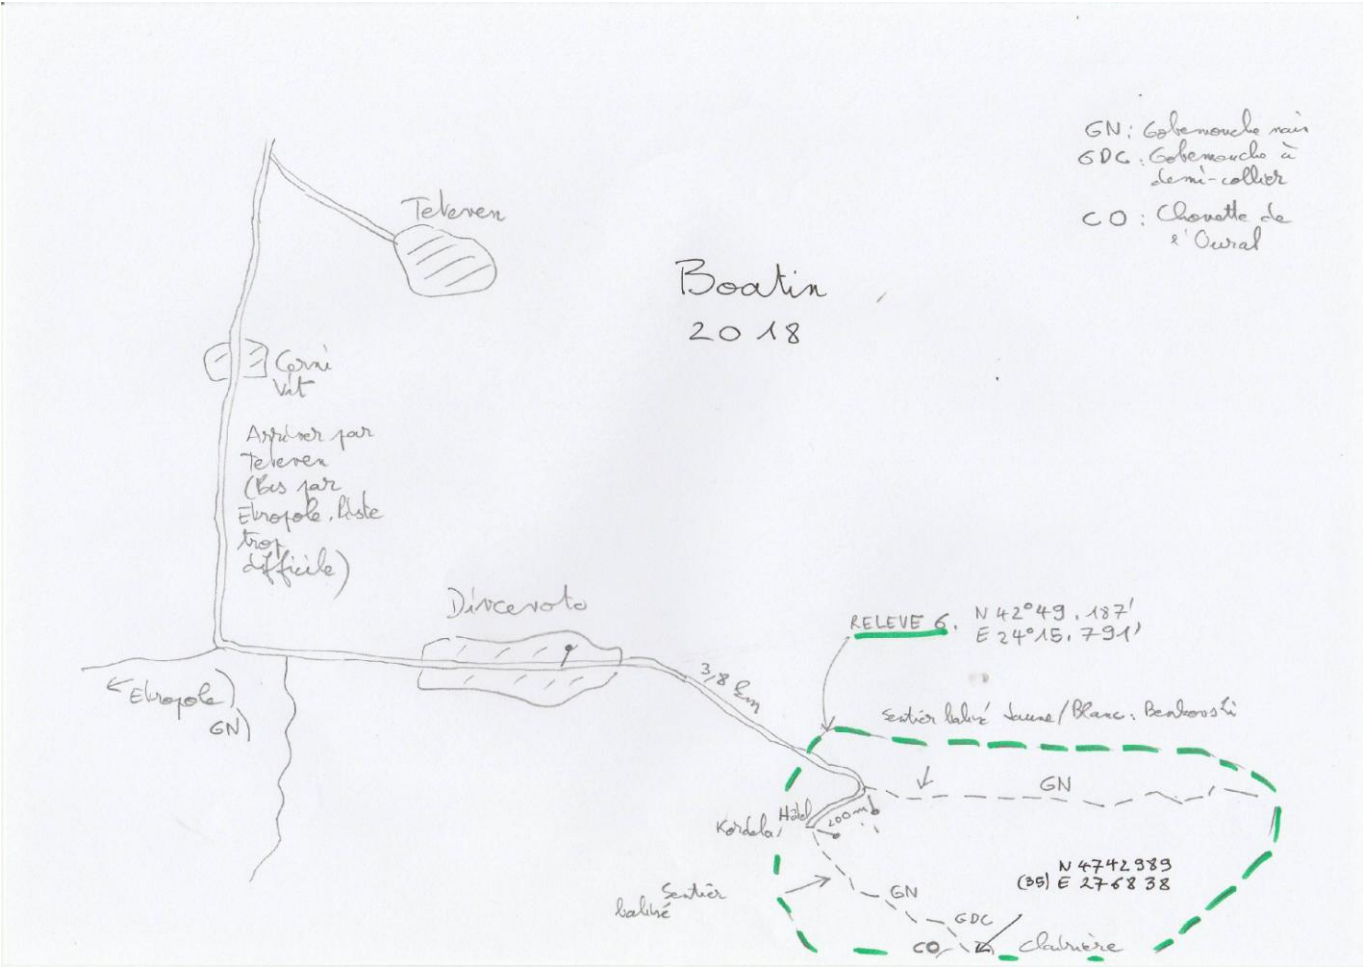 GN : Gobemouche nain
GDC : Gobemouche à
demi-collier
CO : Chouette de
l'Oural
Teteven
Boatin
2018
Cerni
Vit
Arriver par
Teteven
(Pas par
Etropole. Piste
trop
difficile)
Divcevoto
RELEVE 6. N 42°49.187'
E 24°15.791'
3,8 km
← Etropole)
GN)
Sentier balisé Jaune/Blanc : Benkovski
GN
Hôtel
Kordela
200m
N 4742989
(35) E 276838
Sentier
balisé
GN
GDC
CO
Clairière